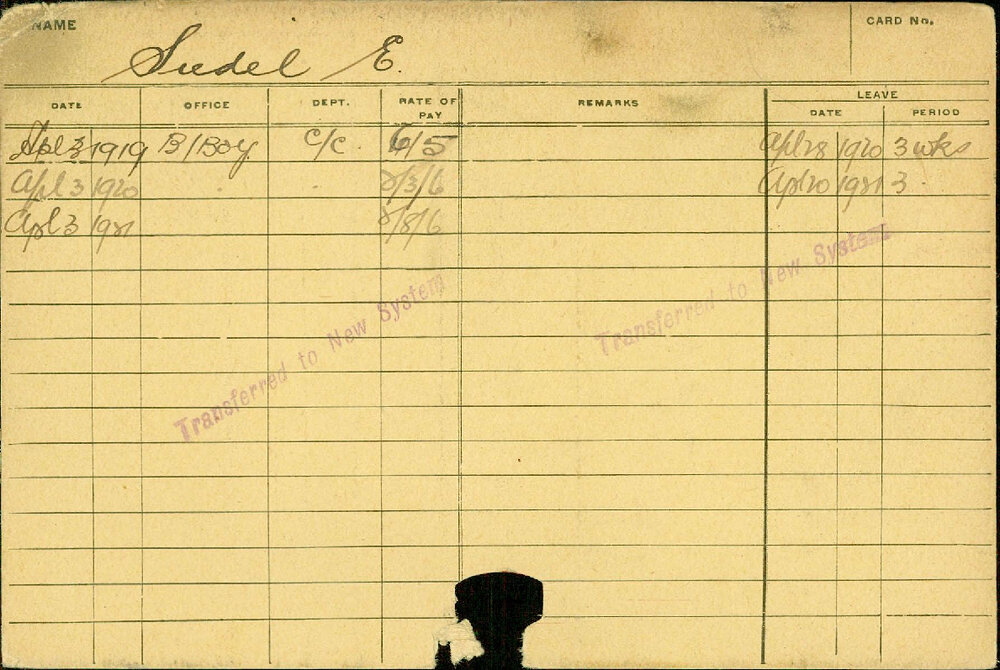 NAME CARD No.
Siedel E.
DATE OFFICE DEPT. RATE OF PAY REMARKS LEAVE
DATE PERIOD
Apl 3 1919 B/Boy C/C 6/5 Apl 28 1920 3 wks
Apl 3 1920 . . 8/3/6 Apl 20 1921 3 .
Apl 3 1921 8/8/6
Transferred to New System
Transferred to New System